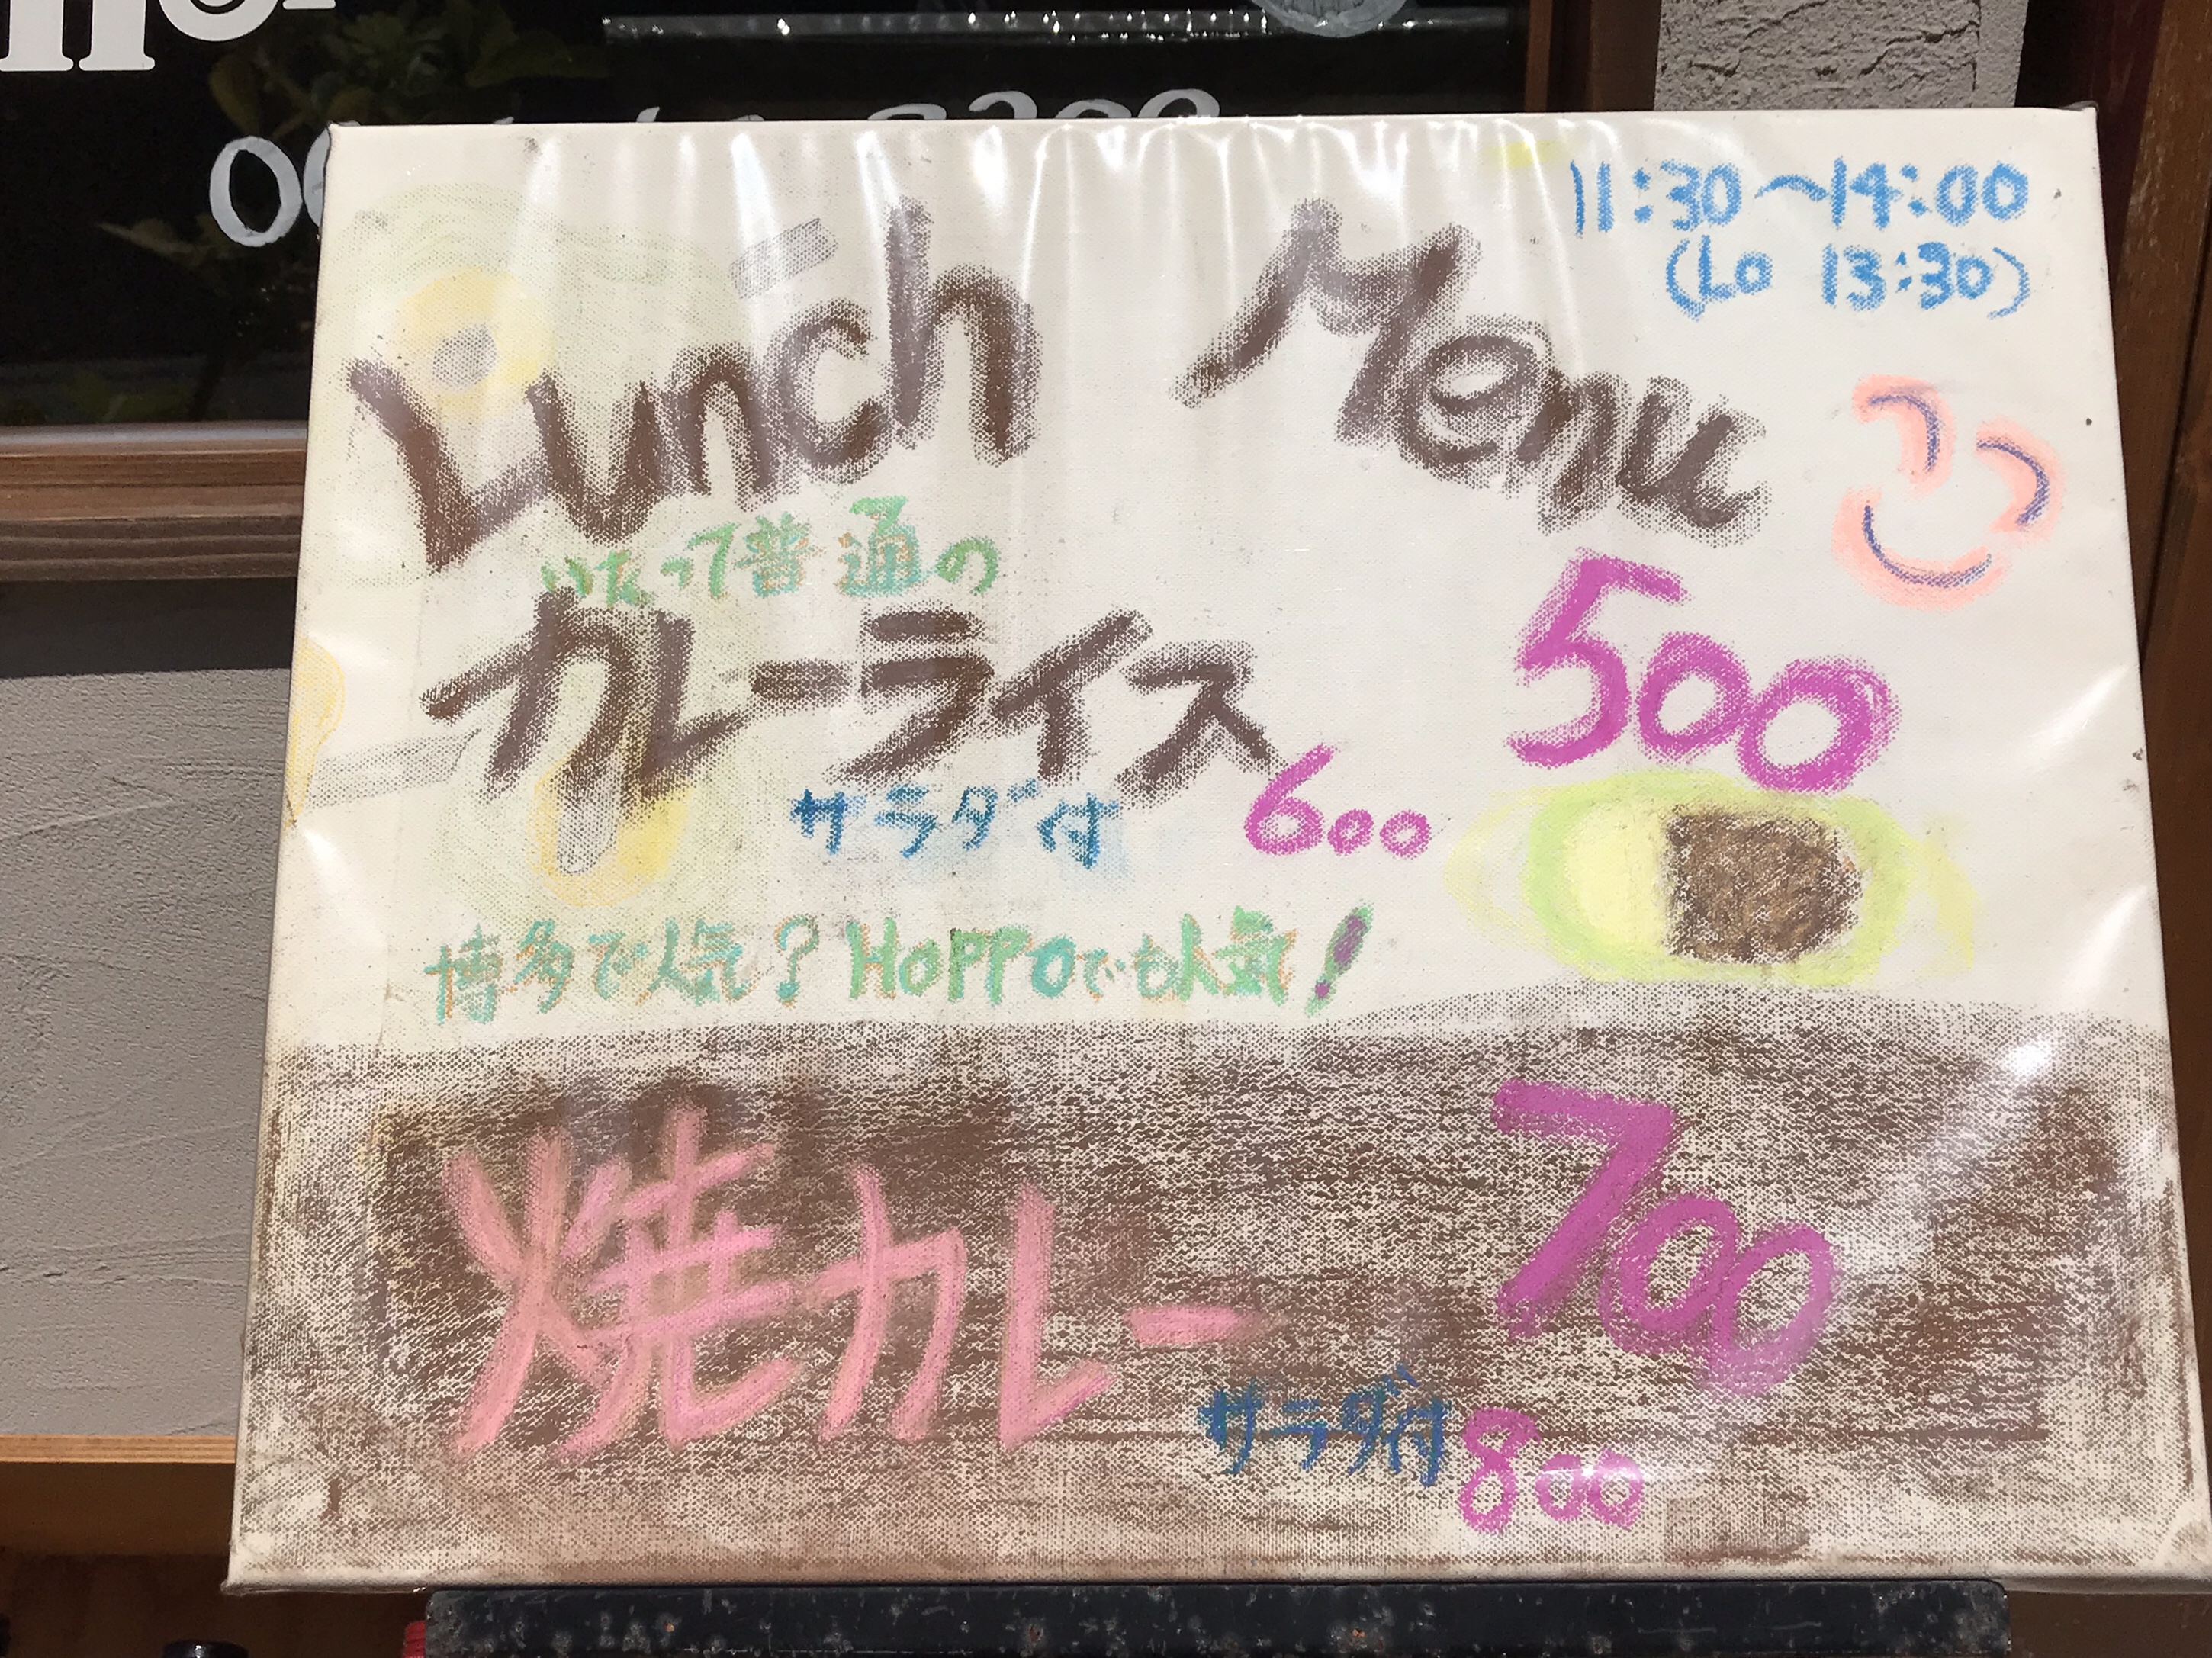 11:30~14:00
(Lo 13:30)
Lunch Menu
いたって普通の
カレーライス 500
サラダ付 600
博多で人気?HOPPOでも人気!
焼カレー 700
サラダ付 800